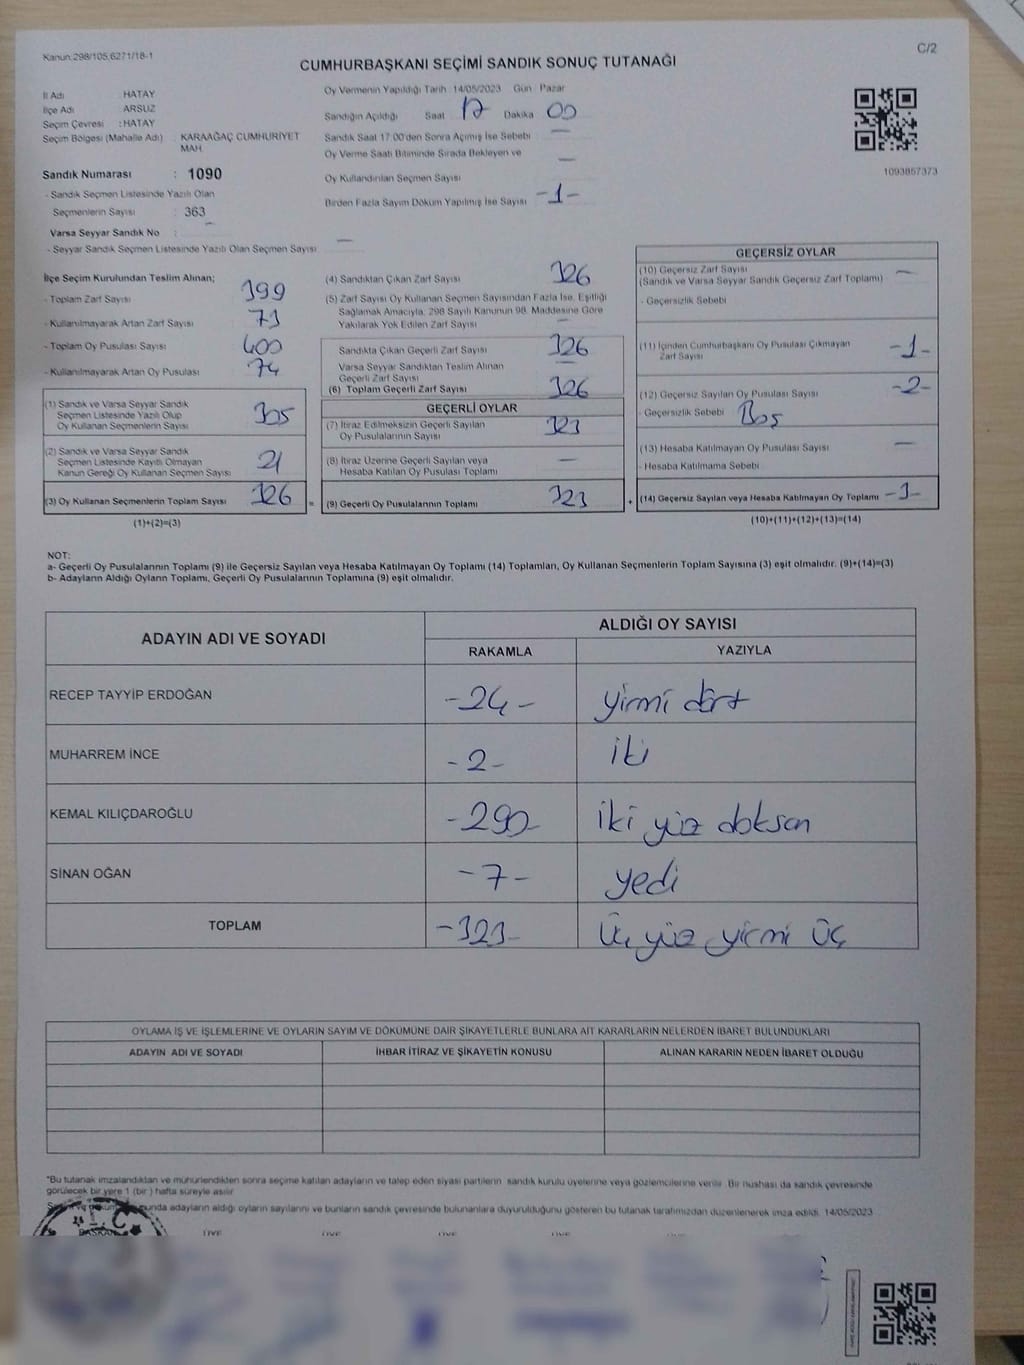 Kanun:298/105,6271/18-1
C/2
CUMHURBAŞKANI SEÇİMİ SANDIK SONUÇ TUTANAĞI
İl Adı : HATAY
İlçe Adı : ARSUZ
Seçim Çevresi : HATAY
Seçim Bölgesi (Mahalle Adı) : KARAAĞAÇ CUMHURİYET MAH.
Sandık Numarası : 1090
- Sandık Seçmen Listesinde Yazılı Olan
Seçmenlerin Sayısı : 363
Varsa Seyyar Sandık No : —
- Seyyar Sandık Seçmen Listesinde Yazılı Olan Seçmen Sayısı : —
Oy Vermenin Yapıldığı Tarih : 14/05/2023 Gün : Pazar
Sandığın Açıldığı Saat 17 Dakika 00
Sandık Saat 17:00'den Sonra Açılmış İse Sebebi —
Oy Verme Saati Bitiminde Sırada Bekleyen ve —
Oy Kullandırılan Seçmen Sayısı
Birden Fazla Sayım Döküm Yapılmış İse Sayısı -1-
1093857373
İlçe Seçim Kurulundan Teslim Alınan;
- Toplam Zarf Sayısı 399
- Kullanılmayarak Artan Zarf Sayısı 73
- Toplam Oy Pusulası Sayısı 400
- Kullanılmayarak Artan Oy Pusulası 74
(1) Sandık ve Varsa Seyyar Sandık
Seçmen Listesinde Yazılı Olup
Oy Kullanan Seçmenlerin Sayısı 305
(2) Sandık ve Varsa Seyyar Sandık
Seçmen Listesinde Kayıtlı Olmayan
Kanun Gereği Oy Kullanan Seçmen Sayısı 21
(3) Oy Kullanan Seçmenlerin Toplam Sayısı 326 =
(1)+(2)=(3)
(4) Sandıktan Çıkan Zarf Sayısı 326
(5) Zarf Sayısı Oy Kullanan Seçmen Sayısından Fazla İse, Eşitliği
Sağlamak Amacıyla, 298 Sayılı Kanunun 98. Maddesine Göre
Yakılarak Yok Edilen Zarf Sayısı —
Sandıkta Çıkan Geçerli Zarf Sayısı 326
Varsa Seyyar Sandıktan Teslim Alınan —
Geçerli Zarf Sayısı
(6) Toplam Geçerli Zarf Sayısı 326
GEÇERLİ OYLAR
(7) İtiraz Edilmeksizin Geçerli Sayılan
Oy Pusulalarının Sayısı 323
(8) İtiraz Üzerine Geçerli Sayılan veya
Hesaba Katılan Oy Pusulası Toplamı —
(9) Geçerli Oy Pusulalarının Toplamı 323 +
GEÇERSİZ OYLAR
(10) Geçersiz Zarf Sayısı —
(Sandık ve Varsa Seyyar Sandık Geçersiz Zarf Toplamı)
- Geçersizlik Sebebi
(11) İçinden Cumhurbaşkanı Oy Pusulası Çıkmayan
Zarf Sayısı -1-
(12) Geçersiz Sayılan Oy Pusulası Sayısı -2-
- Geçersizlik Sebebi Boş
(13) Hesaba Katılmayan Oy Pusulası Sayısı —
- Hesaba Katılmama Sebebi
(14) Geçersiz Sayılan veya Hesaba Katılmayan Oy Toplamı -3-
(10)+(11)+(12)+(13)=(14)
NOT:
a- Geçerli Oy Pusulalarının Toplamı (9) ile Geçersiz Sayılan veya Hesaba Katılmayan Oy Toplamı (14) Toplamları, Oy Kullanan Seçmenlerin Toplam Sayısına (3) eşit olmalıdır. (9)+(14)=(3)
b- Adayların Aldığı Oyların Toplamı, Geçerli Oy Pusulalarının Toplamına (9) eşit olmalıdır.
ADAYIN ADI VE SOYADI
ALDIĞI OY SAYISI
RAKAMLA YAZIYLA
RECEP TAYYİP ERDOĞAN -24- yirmi dört
MUHARREM İNCE -2- iki
KEMAL KILIÇDAROĞLU -290- iki yüz doksan
SİNAN OĞAN -7- yedi
TOPLAM -323- üç yüz yirmi üç
OYLAMA İŞ VE İŞLEMLERİNE VE OYLARIN SAYIM VE DÖKÜMÜNE DAİR ŞİKAYETLERLE BUNLARA AİT KARARLARIN NELERDEN İBARET BULUNDUKLARI
ADAYIN ADI VE SOYADI İHBAR İTİRAZ VE ŞİKAYETİN KONUSU ALINAN KARARIN NEDEN İBARET OLDUĞU
*Bu tutanak imzalandıktan ve mühürlendikten sonra seçime katılan adayların ve talep eden siyasi partilerin sandık kurulu üyelerine veya gözlemcilerine verilir. Bir nushası da sandık çevresinde
görülecek bir yere 1 (bir ) hafta süreyle asılır.
adayların aldığı oyların sayılarını ve bunların sandık çevresinde bulunanlara duyurulduğunu gösteren bu tutanak tarafımızdan düzenlenerek imza edildi. 14/05/2023
T.C.
BAŞKAN ÜYE ÜYE ÜYE ÜYE